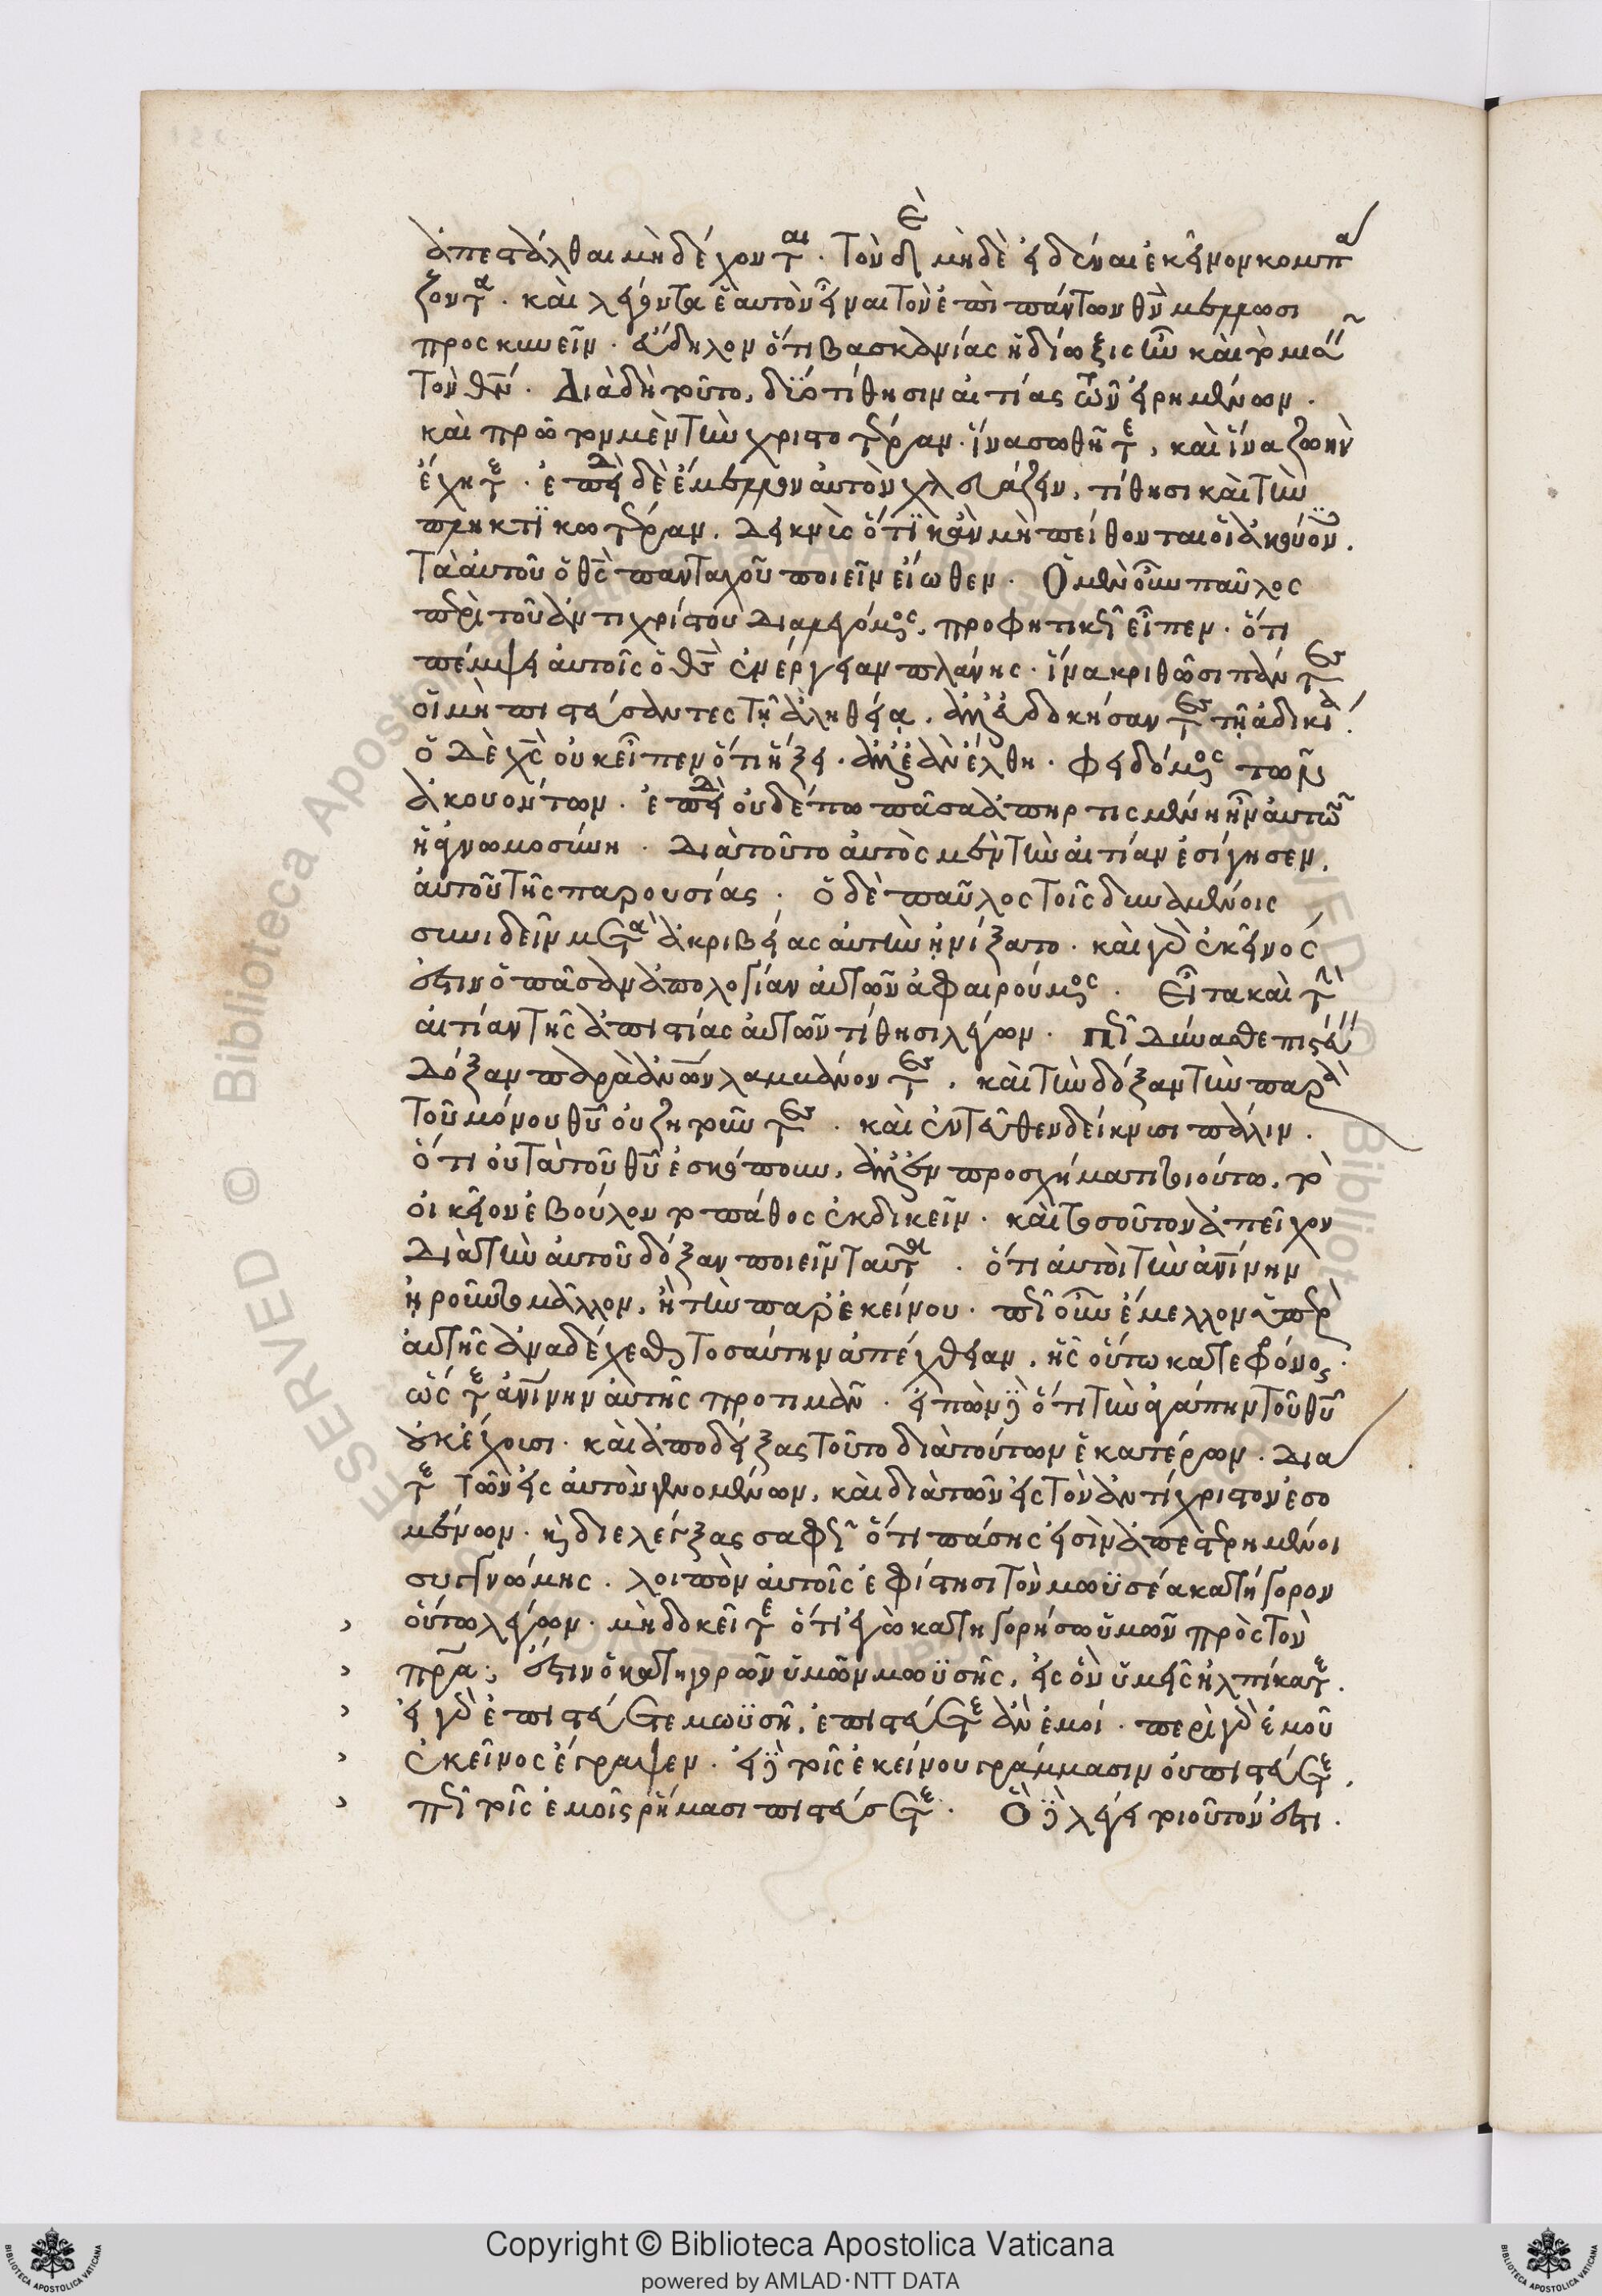 ἀπεστάλθαι μὴ δέχονται. τὸν δὲ μηδὲ εἰδέναι ἐκεῖνον κομπά
ζοντα. καὶ λέγοντα ἑαυτὸν εἶναι τὸν ἐπὶ πάντων θν μέλλωσι
προσκυνεῖν. εὔδηλον ὅτι βασκανίας ἡ δίωξις ἦν καὶ τοῦ μισεῖν
τὸν θν. Διὰ δὴ τοῦτο, δύο τίθησιν αἰτίας τῶν εἰρημένων.
καὶ πρῶτον μὲν τὴν χρηστοτέραν. ἵνα σωθῆτε, καὶ ἵνα ζωὴν
ἔχητε. ἐπειδὴ δὲ ἔμελλον αὐτὸν χλευάζειν, τίθησι καὶ τὴν
πληκτικωτέραν. δεικνὺς ὅτι κἂν μὴ πείθονται οἱ ἀκούοντες.
τὰ αὐτοῦ ὁ θς πανταχοῦ ποιεῖν εἴωθεν. Ὁ μὲν οὖν παῦλος
περὶ τοῦ ἀντιχρίστου διαλεγόμενος, προφητικῶς εἶπεν. ὅτι
πέμψει αὐτοῖς ὁ θς ἐνέργειαν πλάνης. ἵνα κριθῶσι πάντες
οἱ μὴ πιστεύσαντες τῇ ἀληθείᾳ, ἀλλ' εὐδοκήσαντες τῇ ἀδικίᾳ.
ὁ δὲ χς οὐκ εἶπεν ὅτι ἥξει. ἀλλ' ἐὰν ἔλθῃ. φειδόμενος τῶν
ἀκουόντων. ἐπειδὴ οὐδέπω πᾶσα ἀπηρτισμένη ἦν αὐτῶν
ἡ ἀγνωμοσύνη. Διὰ τοῦτο αὐτὸς μὲν τὴν αἰτίαν ἐσίγησεν,
αὐτοῦ τῆς παρουσίας. ὁ δὲ παῦλος τοῖς δυναμένοις
συνιδεῖν μετὰ ἀκριβείας αὐτὴν ᾐνίξατο. καὶ γὰρ ἐκεῖνός
ἐστιν ὁ πᾶσαν ἀπολογίαν αὐτῶν ἀφαιρούμενος. Εἶτα καὶ τὴν
αἰτίαν τῆς ἀπιστίας αὐτῶν τίθησι λέγων. πῶς δύνασθε πιστεύειν
δόξαν παρὰ ἀνων λαμβάνοντες, καὶ τὴν δόξαν τὴν παρὰ
τοῦ μόνου θυ οὐ ζητοῦντες. καὶ ἐντεῦθεν δείκνυσι πάλιν.
ὅτι οὐ τὰ τοῦ θυ ἐσκόπουν, ἀλλ' ἐν προσχήματι τούτω, τὸ
οἰκεῖον ἐβούλοντο πάθος ἐκδικεῖν. καὶ τοσοῦτον ἀπεῖχον
διὰ τὴν αὐτοῦ δόξαν ποιεῖν ταῦτα. ὅτι αὐτοὶ τὴν ἀνίνην
ᾑροῦντο μᾶλλον, ἢ τὴν παρ' ἐκείνου. πῶς οὖν ἔμελλον ὑπὲρ
αὐτῆς ἀναδέχεσθαι τοσαύτην ἀπέχθειαν, ἧς οὕτω κατεφρόνουν.
ὡς τὴν ἀνίνην αὐτῆς προτιμᾶν. εἰπὼν γὰρ ὅτι τὴν ἀγάπην τοῦ θυ
οὐκ ἔχουσι. καὶ ἀποδείξας τοῦτο διὰ τούτων ἑκατέρων. διά
τε τῶν εἰς αὐτὸν γινομένων, καὶ διὰ τῶν εἰς τὸν ἀντίχριστον ἐσο
μένων. καὶ διελέγξας σαφῶς ὅτι πάσης εἰσὶν ἀπεστερημένοι
συγγνώμης. λοιπὸν αὐτοῖς ἐφίστησι τὸν μωϋσέα κατήγορον
οὕτω λέγων. μὴ δοκεῖτε ὅτι ἐγὼ κατηγορήσω ὑμῶν πρὸς τὸν
πρα; ἔστιν ὁ κατηγορῶν ὑμῶν μωϋσῆς, εἰς ὃν ὑμεῖς ἠλπίκατε.
εἰ γὰρ ἐπιστεύετε μωϋσῆ, ἐπιστεύετε ἂν ἐμοί. περὶ γὰρ ἐμοῦ
ἐκεῖνος ἔγραψεν. εἰ δὲ τοῖς ἐκείνου γράμμασιν οὐ πιστεύετε,
πῶς τοῖς ἐμοῖς ῥήμασι πιστεύσετε. Ὃ δὲ λέγει τοιοῦτόν ἐστι.
Copyright © Biblioteca Apostolica Vaticana
powered by AMLAD·NTT DATA